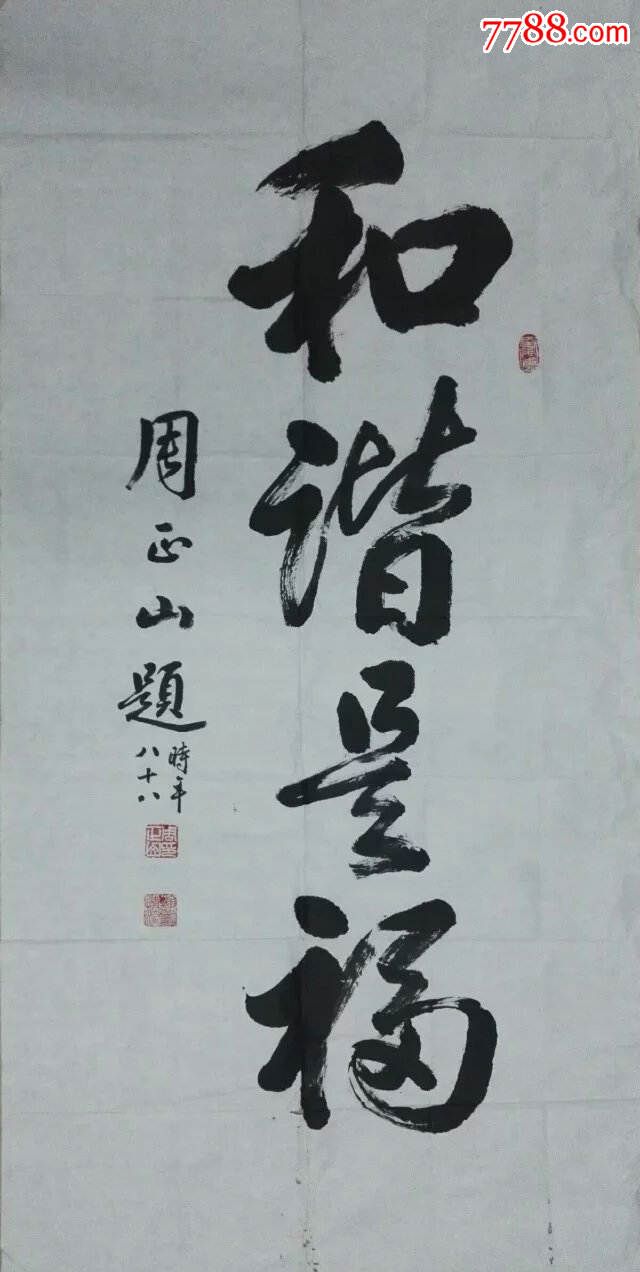 7788.com
和諧是福
周正山題
時年
八十八